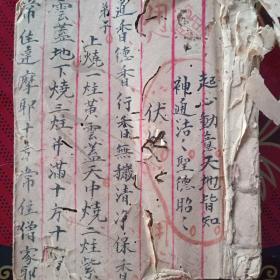 起心動意天地皆知
神通浩〻聖德昭〻
伏以
道香德香行香無攙清净保香
弟子
上燒一炷黄雲蓋天中燒二炷紫
雲蓋地下燒三炷井滿十方十
常住達摩耶十方常住僧家耶